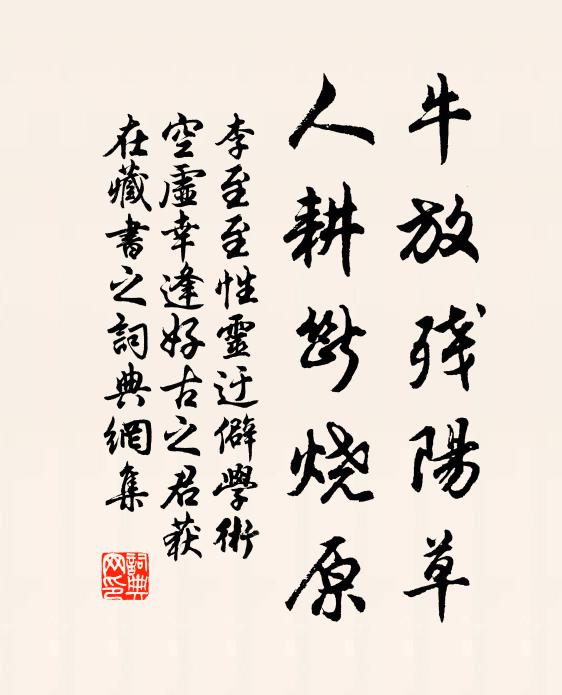 牛放残陽草
人耕断烧原
李至至性靈迂僻學術
空虛幸逢好古之君获
在藏書之詞典網集
詞典网印